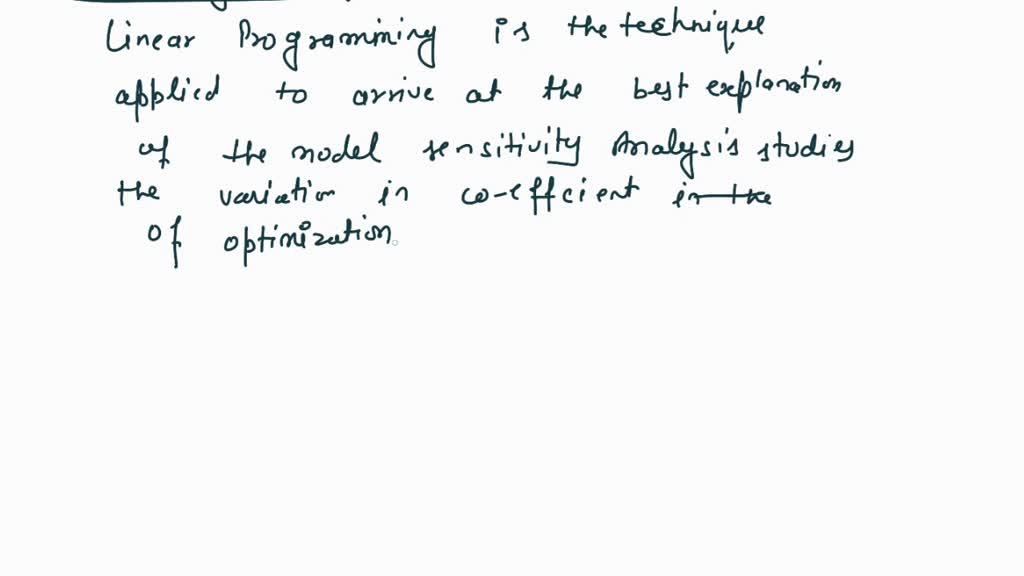 Linear Programming is the technique
applied to arrive at the best explanation
of the model sensitivity Analysis studies
the variation in co-efficient in the
of optimization.